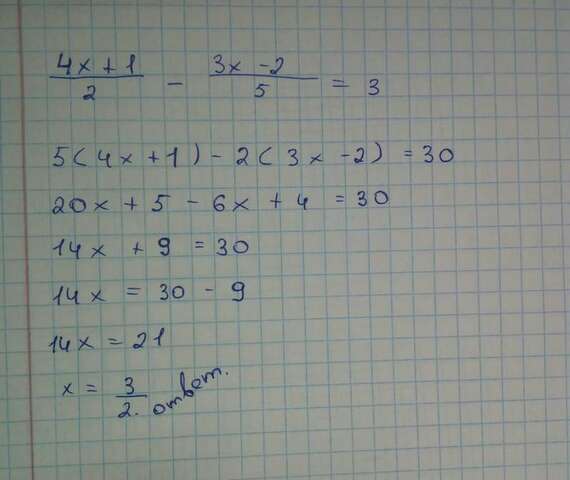 (4x + 1)/2 - (3x - 2)/5 = 3
5(4x + 1) - 2(3x - 2) = 30
20x + 5 - 6x + 4 = 30
14x + 9 = 30
14x = 30 - 9
14x = 21
x = 3/2. ответ.